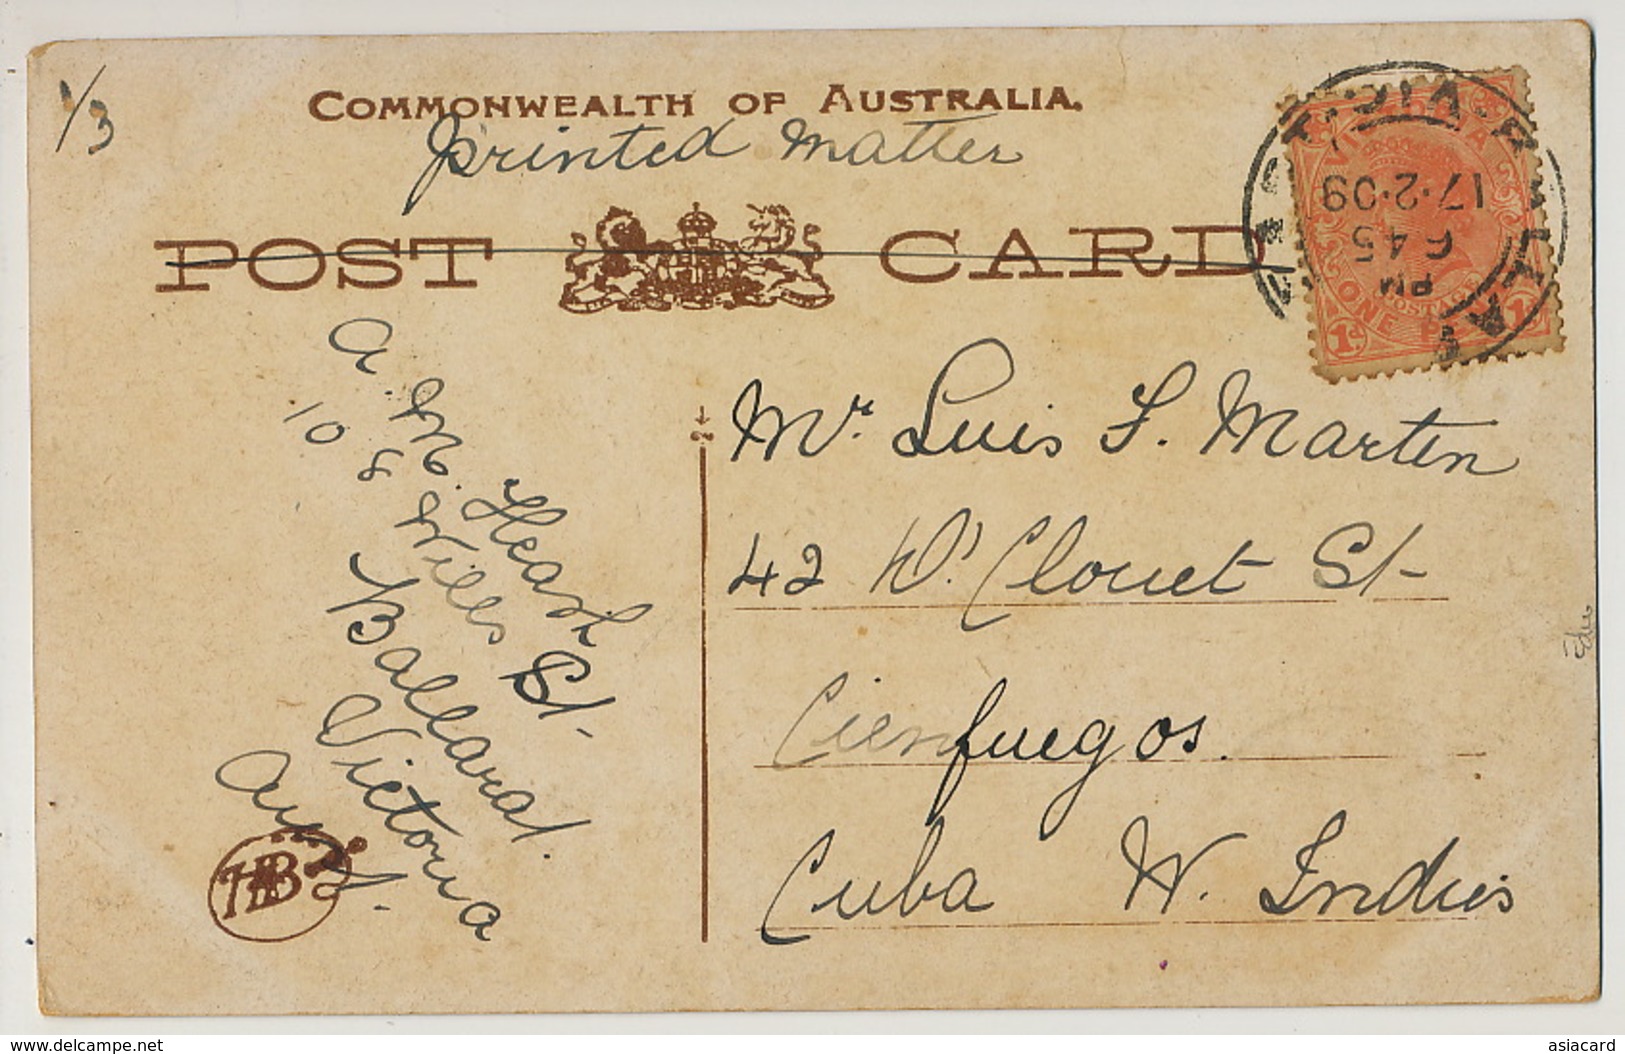 1/3
COMMONWEALTH OF AUSTRALIA.
Printed Matter
POST CARD
VICTORIA
17·2·09
6 45
PM
ONE
1d
1d
A. M. Heash
10 8 Wills St
Ballarat.
Victoria
Aust.
HB
Mr. Luis F. Martin
42 D'Clouet St
Cienfuegos.
Cuba W. Indies
www.delcampe.net
asiacard